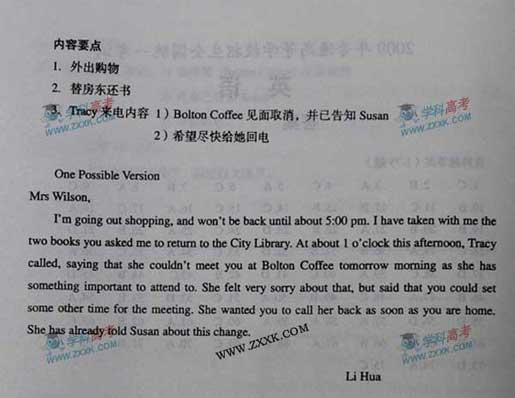 内容要点
1. 外出购物
2. 替房东还书
3. Tracy 来电内容 1）Bolton Coffee 见面取消，并已告知 Susan
2）希望尽快给她回电
学科高考
ZXXK.COM
学科高考
ZXXK.COM
One Possible Version
Mrs Wilson,
I'm going out shopping, and won't be back until about 5:00 pm. I have taken with me the
two books you asked me to return to the City Library. At about 1 o'clock this afternoon, Tracy
called, saying that she couldn't meet you at Bolton Coffee tomorrow morning as she has
something important to attend to. She felt very sorry about that, but said that you could set
some other time for the meeting. She wanted you to call her back as soon as you are home.
She has already told Susan about this change.
学科高考
ZXXK.COM
WWW.ZXXK.COM
学科高考
ZXXK.COM
Li Hua